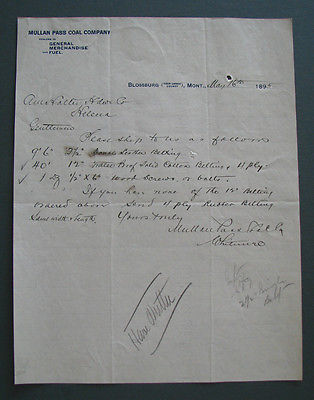 MULLAN PASS COAL COMPANY
DEALERS IN
GENERAL
MERCHANDISE
AND
FUEL.
BLOSSBURG MONT., May 16th 189
Helena
Gentlemen
Please ship to us as follows
9 ft 2 1/2" Leather Belting
40' 12" Water Proof Solid Cotton Belting, 4 ply
1 1/2 X 6" Wood Screws, or bolts.
If you have none of the 12" Belting
ordered above send 4 ply Rubber Belting
same width & length
Yours truly
Mullan Pass Coal Co
Have written